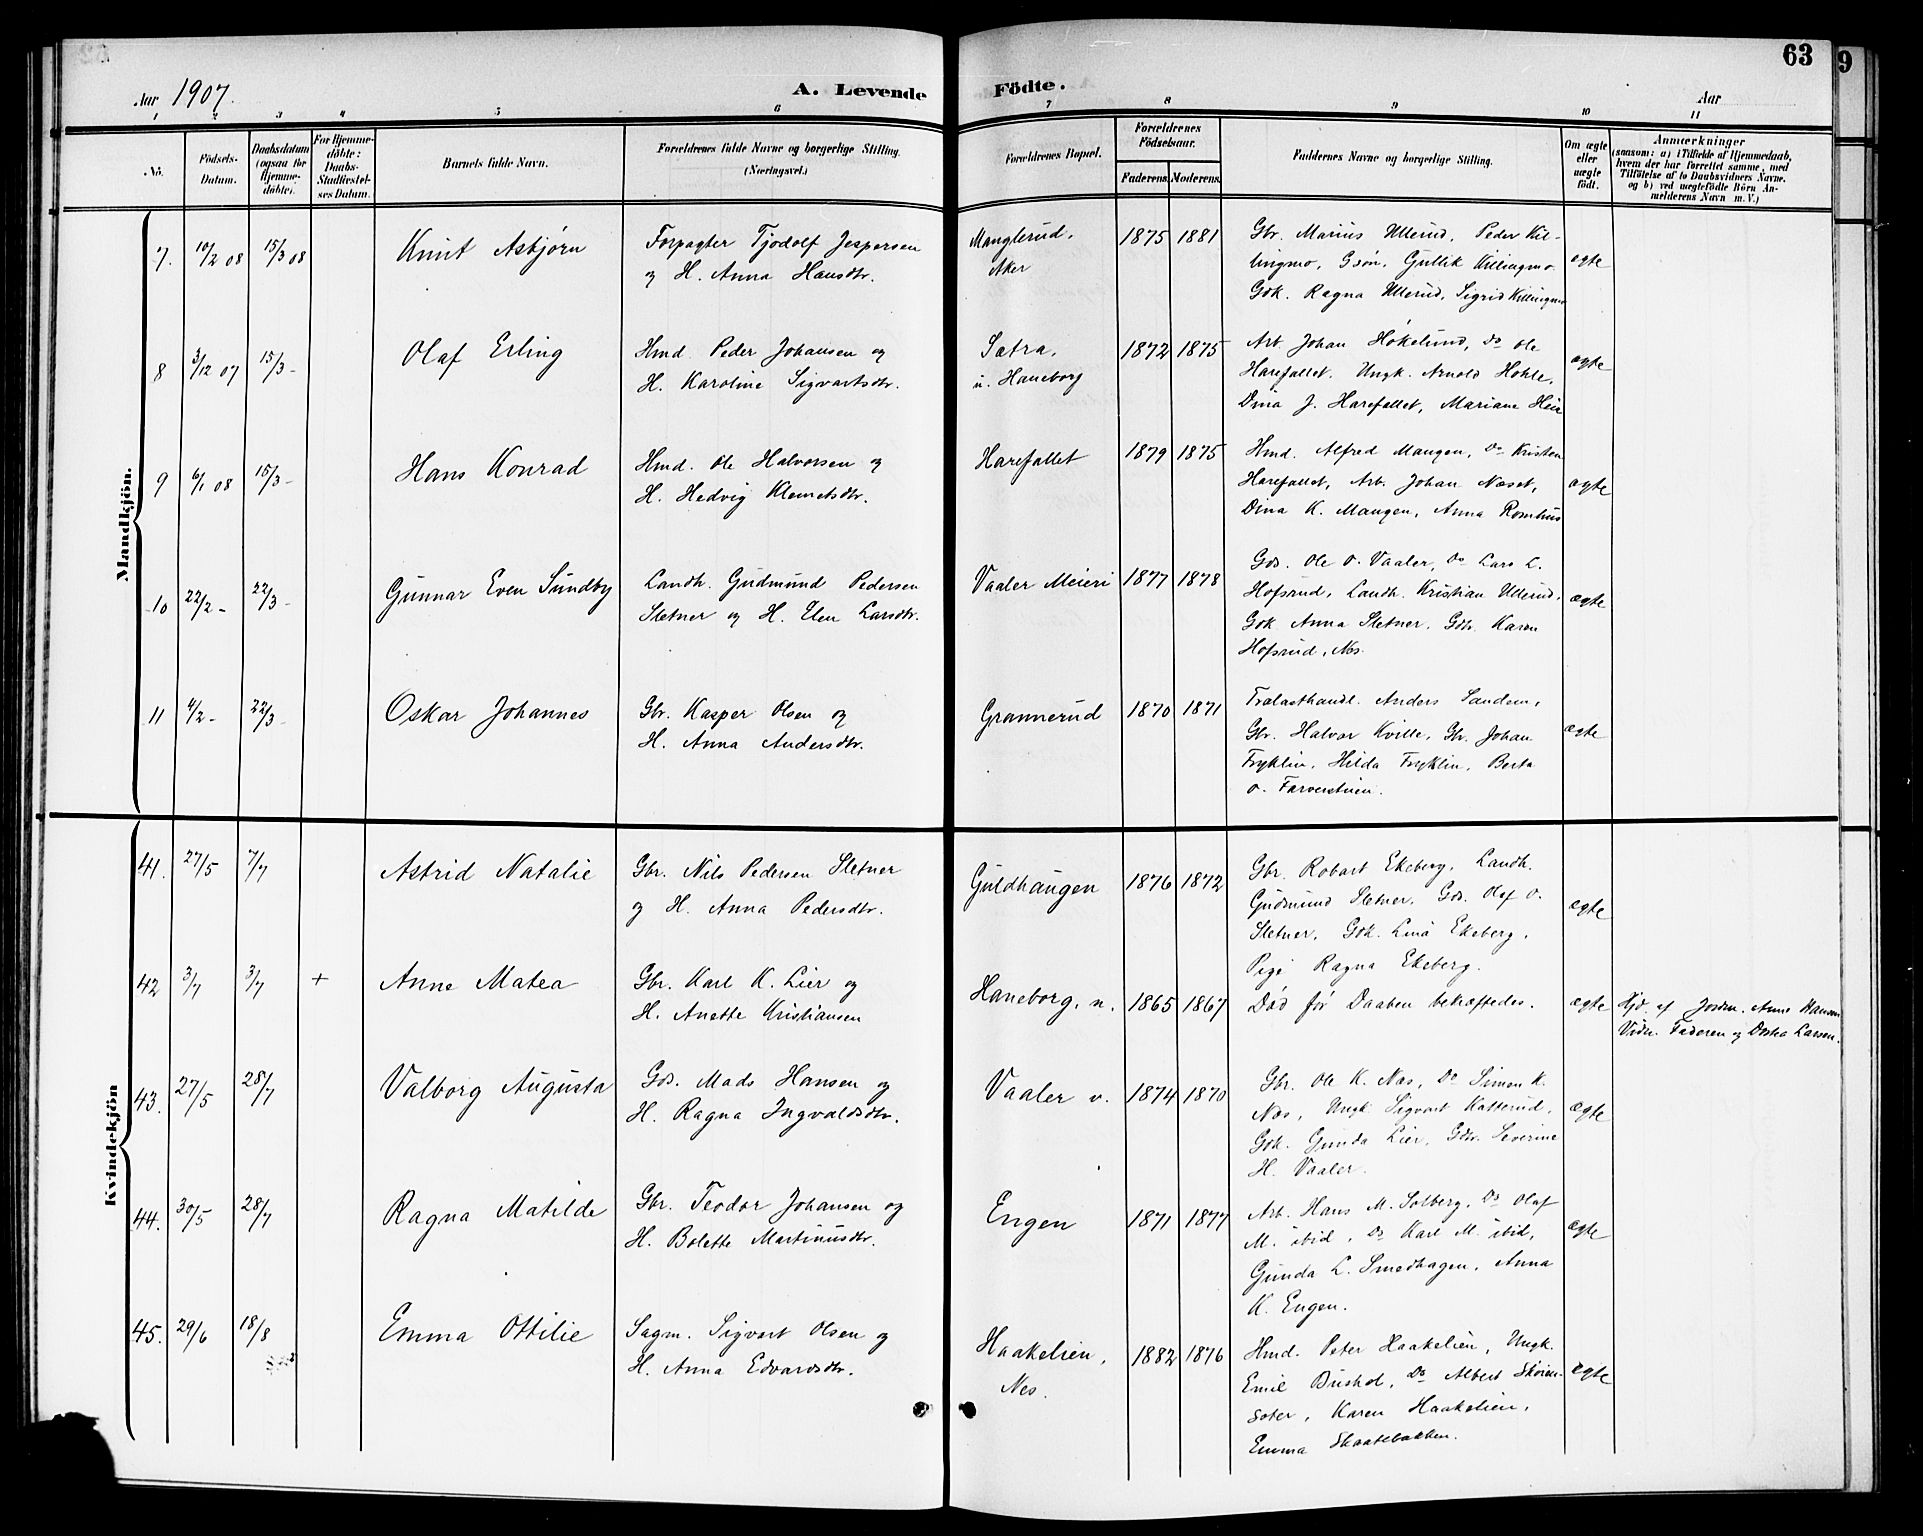 63
9
Aar 1907.
A. Levende Födte.
Aar
1 2 3 4 5 6 7 8 9 10 11
No.
Födsels-Datum.
Daabsdatum (ogsaa for Hjemme-döbte).
For Hjemme-döbte: Daabs-Stadfæstel-ses Datum.
Barnets fulde Navn.
Forældrenes fulde Navne og borgerlige Stilling.
(Næringsvei.)
Forældrenes Bopæl.
Forældrenes Födselsaar.
Faderens. Moderens.
Faddernes Navne og borgerlige Stilling.
Om ægte eller uægte født.
Anmærkninger
(saasom: a) i Tilfælde af Hjemmedaab,
hvem der har forrettet samme, med
Tilföielse af to Daabsvidners Navne.
og b) ved uægtefødte Börn An-
melderens Navn m. V.)
Mandkjön.
7. 10/2 08 15/3 08 Knut Asbjørn
Forpagter Tjodolf Jespersen
og H. Anna Hansdtr.
Manglerud,
Aker
1875 1881
Gbr. Marius Ullerud, Peder Kil-
lingmo, Gsøn. Gullik Killingmo
Gok. Ragna Ullerud, Sigrid Killingmo
ægte
8 3/12 07 15/3 - Olaf Erling
Hmd. Peder Johansen og
H. Karoline Sigvartsdtr.
Sætra,
u. Haneborg
1872 1875
Arb. Johan Høkelund, Do Ole
Harefallet. Ungk. Arnold Hohle,
Dina J. Harefallet, Mariane Heie
ægte
9 6/1 08 15/3 - Hans Konrad
Hmd. Ole Halvorsen og
H. Hedvig Klemetsdtr.
Harefallet
1879 1875
Hmd. Alfred Mangen, Do Kristian
Harefallet, Arb. Johan Næset,
Dina K. Mangen, Anna Romhus
ægte
10 22/2 - 22/3 - Gunnar Even Sundby
Landh. Gudmund Pedersen
Sletner og H. Elen Larsdtr.
Vaaler Meieri
1877 1878
Gds. Ole O. Vaaler, Do Lars L.
Hofsrud, Landh. Kristian Ullerud,
Gok Anna Sletner, Gdtr. Karen
Hofsrud, Nes.
ægte
11 4/2 - 22/3 - Oskar Johannes
Gbr. Kasper Olsen og
H. Anna Andersdtr.
Grønnerud
1870 1871
Trælasthandl. Anders Sandem,
Gbr. Halvor Kville, Gbr. Johan
Fryklin, Hilda Fryklin, Berta
O. Farverstuen.
ægte
Kvindekjön
41. 27/5 7/7 Astrid Natalie
Gbr. Nils Pedersen Sletner
og H. Anna Pedersdtr.
Guldhaugen
1876 1872
Gbr. Robart Ekeberg, Landh.
Gudmund Sletner, Gds. Olaf O.
Sletner, Gok. Lina Ekeberg,
Pige Ragna Ekeberg.
ægte
42 3/7 3/7 + Anne Matea
Gbr. Karl K. Lier og
H. Anette Kristiansen
Haneborg, n.
1865 1867
Død før Daaben bekræftedes.
ægte
Hjd. af Jordm. Anne Hansen
Vidn. Faderen og Dortea Larsen.
43. 27/5 28/7 Valborg Augusta
Gds. Mads Hansen og
H. Ragna Ingvaldsdtr.
Vaaler v.
1874 1870
Gbr. Ole K. Næs, Do Simon K.
Næs, Ungk Sigvart Katterud,
Gok. Gunda Lier, Gdtr. Severine
H. Vaaler.
ægte
44. 30/5 28/7 Ragna Matilde
Gbr. Teodor Johansen og
H. Bolette Martinusdtr.
Engen
1871 1877
Arb. Hans M. Solberg, Do Olaf
M. ibid, Do Karl M. ibid,
Gunda L. Smedhagen, Anna
K. Engen.
ægte
45. 29/6 18/8 Emma Ottilie
Sagm. Sigvart Olsen og
H. Anna Edvardsdtr.
Haakelien,
Nes.
1882 1876
Hmd. Peter Haakelien, Ungk.
Emil Bushol, Do Albert Skøien-
soter, Karen Haakelien,
Emma Skaatebakken.
ægte